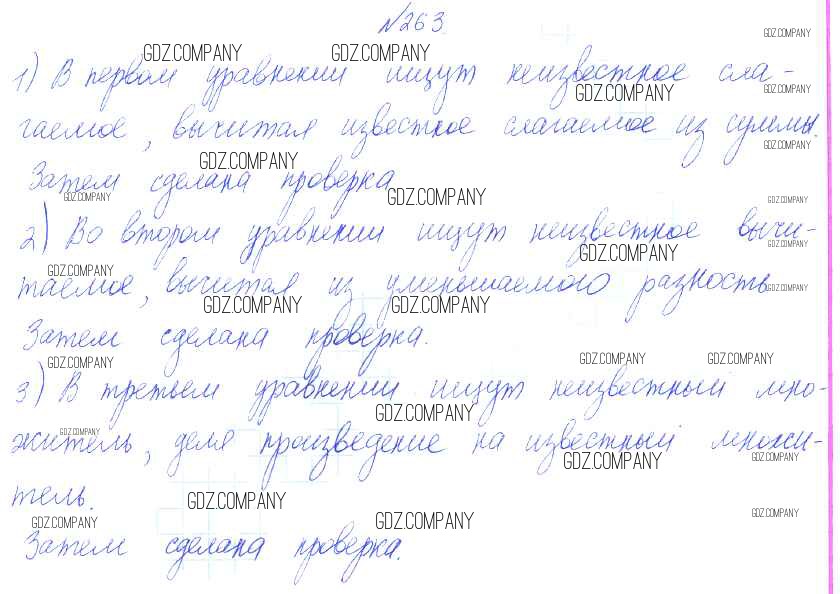 №263
GDZ.COMPANY
GDZ.COMPANY GDZ.COMPANY
1) В первом уравнении ищут неизвестное сла-
GDZ.COMPANY GDZ.COMPANY
гаемое, вычитая известное слагаемое из суммы.
GDZ.COMPANY GDZ.COMPANY
Затем сделана проверка
GDZ.COMPANY GDZ.COMPANY GDZ.COMPANY
2) Во втором уравнении ищут неизвестное вычи-
GDZ.COMPANY GDZ.COMPANY
GDZ.COMPANY
таемое, вычитая из уменьшаемого разность
GDZ.COMPANY
GDZ.COMPANY GDZ.COMPANY
Затем сделана проверка.
GDZ.COMPANY GDZ.COMPANY GDZ.COMPANY
3) В третьем уравнении ищут неизвестный мно-
GDZ.COMPANY
GDZ.COMPANY
житель, деля произведение на известный множи-
GDZ.COMPANY GDZ.COMPANY
тель.
GDZ.COMPANY GDZ.COMPANY
GDZ.COMPANY GDZ.COMPANY
Затем сделана проверка.